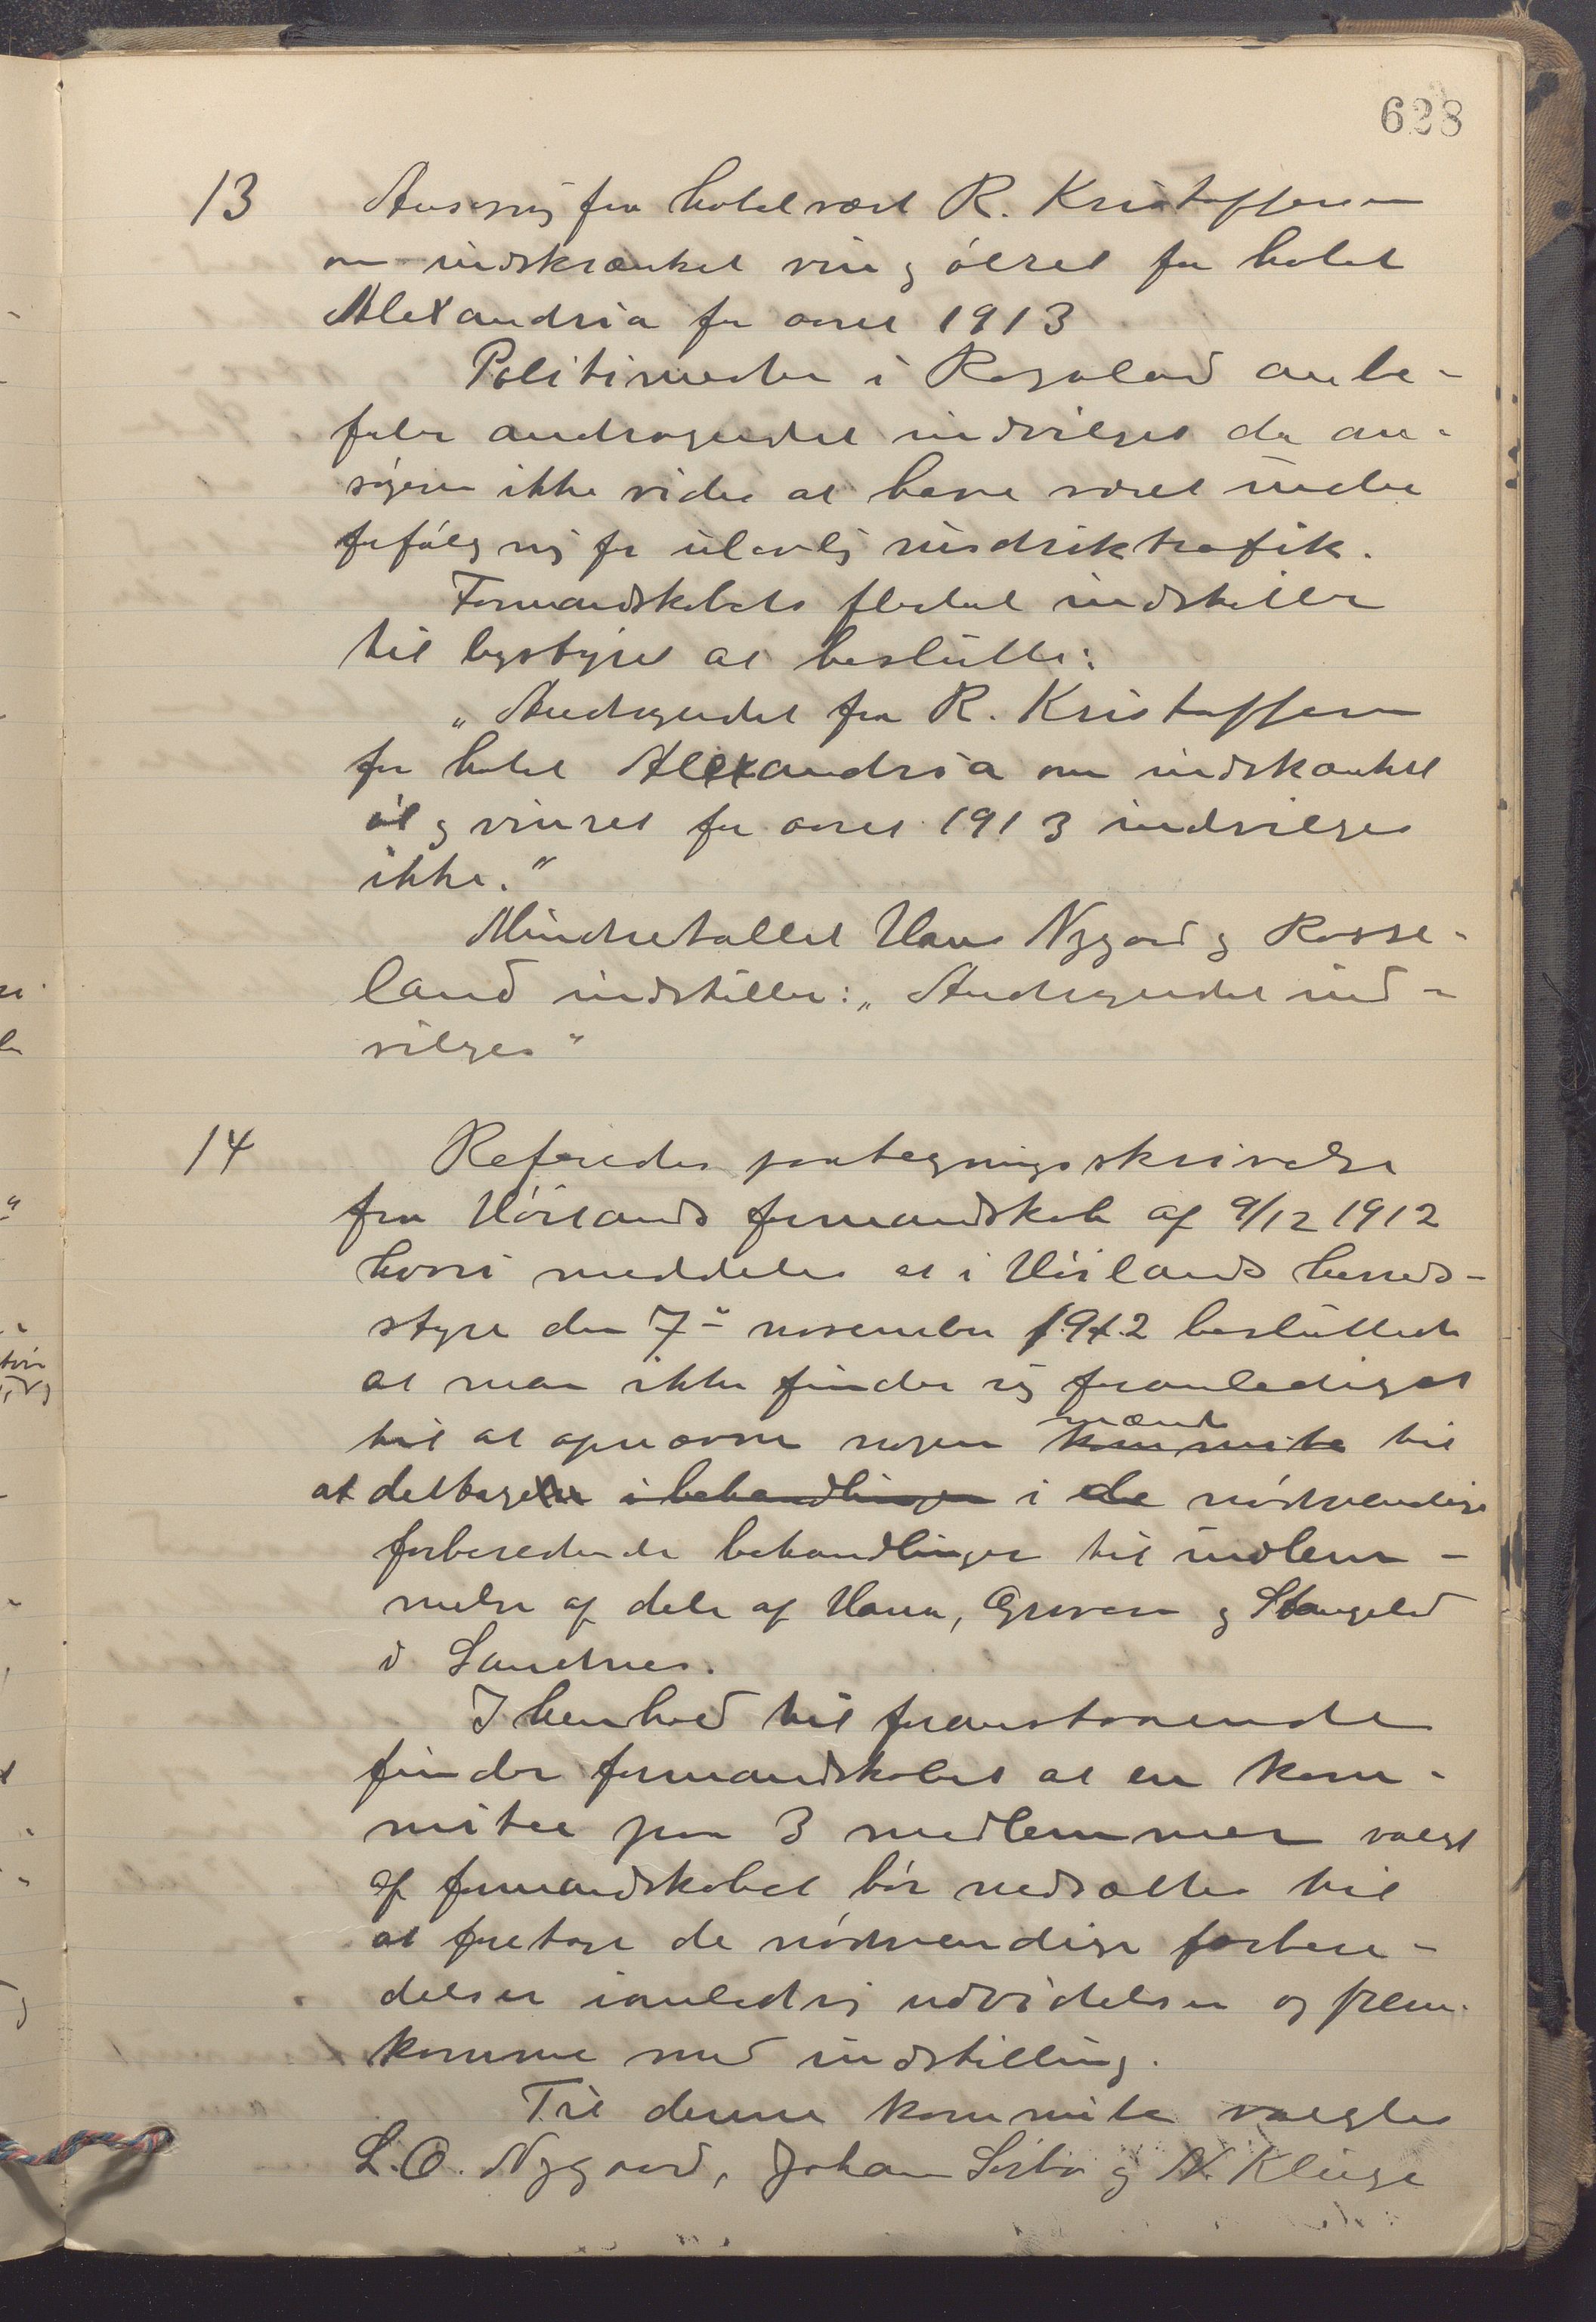 628
13 Ansøgning fra hotelvært R. Kristoffersen
om indskrænket vin og ølret for hotel
Alexandria for aaret 1913
Politimesteren i Rogaland anbe-
faler andragendet indvilget da an-
søgeren ikke vides at have været under
forfølgning for ulovlig rusdriktrafik.
Formandskabets flertal indstiller
til bystyret at beslutte:
"Andragendet fra R. Kristoffersen
for hotel Alexandria om indskænket
øl og vinret for aaret 1913 indvilges
ikke."
Mindretallet Hans Nygaard og Rosse-
land indstiller: "Andragendet ind-
vilges"
14 Refereredes paategningsskrivelse
fra Høilands formandskab af 9/12 1912
hvori meddeles at i Høilands herreds-
styre den 7de november 1912 besluttedes
at man ikke finder sig foranlediget
til at opnævne nogen komite mænd til
at deltage i behandlingen i de nødvendige
forberedende behandlinger til indlem-
melse af dele af Hana, Gravaren og Stangeland
i Sandnes.
I henhold til foranstaaende
finder formandskabet at en kom-
mitee paa 3 medlemmer valgt
af formandskabet bør nedsættes til
at foretage de nødvendige forbere-
delser ianledning udvidelsen og frem-
komme med indstilling.
Til denne kommite valgtes
L. O. Nygaard, Johan Sørbø og N. Kluge